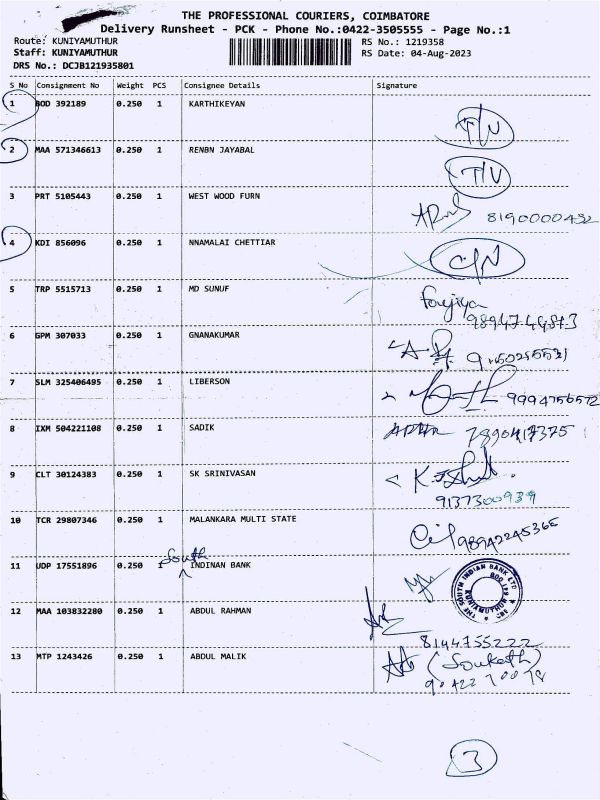 THE PROFESSIONAL COURIERS, COIMBATORE
Delivery Runsheet - PCK - Phone No.:0422-3505555 - Page No.:1
Route: KUNIYAMUTHUR RS No.: 1219358
Staff: KUNIYAMUTHUR RS Date: 04-Aug-2023
DRS No.: DCJB121935801
S No Consignment No Weight PCS Consignee Details Signature
1 BOD 392189 0.250 1 KARTHIKEYAN
2 MAA 571346613 0.250 1 RENBN JAYABAL
3 PRT 5105443 0.250 1 WEST WOOD FURN 8190000432
4 KDI 856096 0.250 1 NNAMALAI CHETTIAR
5 TRP 5515713 0.250 1 MD SUNUF
6 GPM 307033 0.250 1 GNANAKUMAR
7 SLM 325406495 0.250 1 LIBERSON 9994756572
8 IXM 504221108 0.250 1 SADIK
9 CLT 30124383 0.250 1 SK SRINIVASAN
9137300939
10 TCR 29807346 0.250 1 MALANKARA MULTI STATE
11 UDP 17551896 0.250 1 South INDINAN BANK THE SOUTH INDIAN BANK LTD KUNIAMUTHUR
12 MAA 103832280 0.250 1 ABDUL RAHMAN
8144755222
13 MTP 1243426 0.250 1 ABDUL MALIK
3